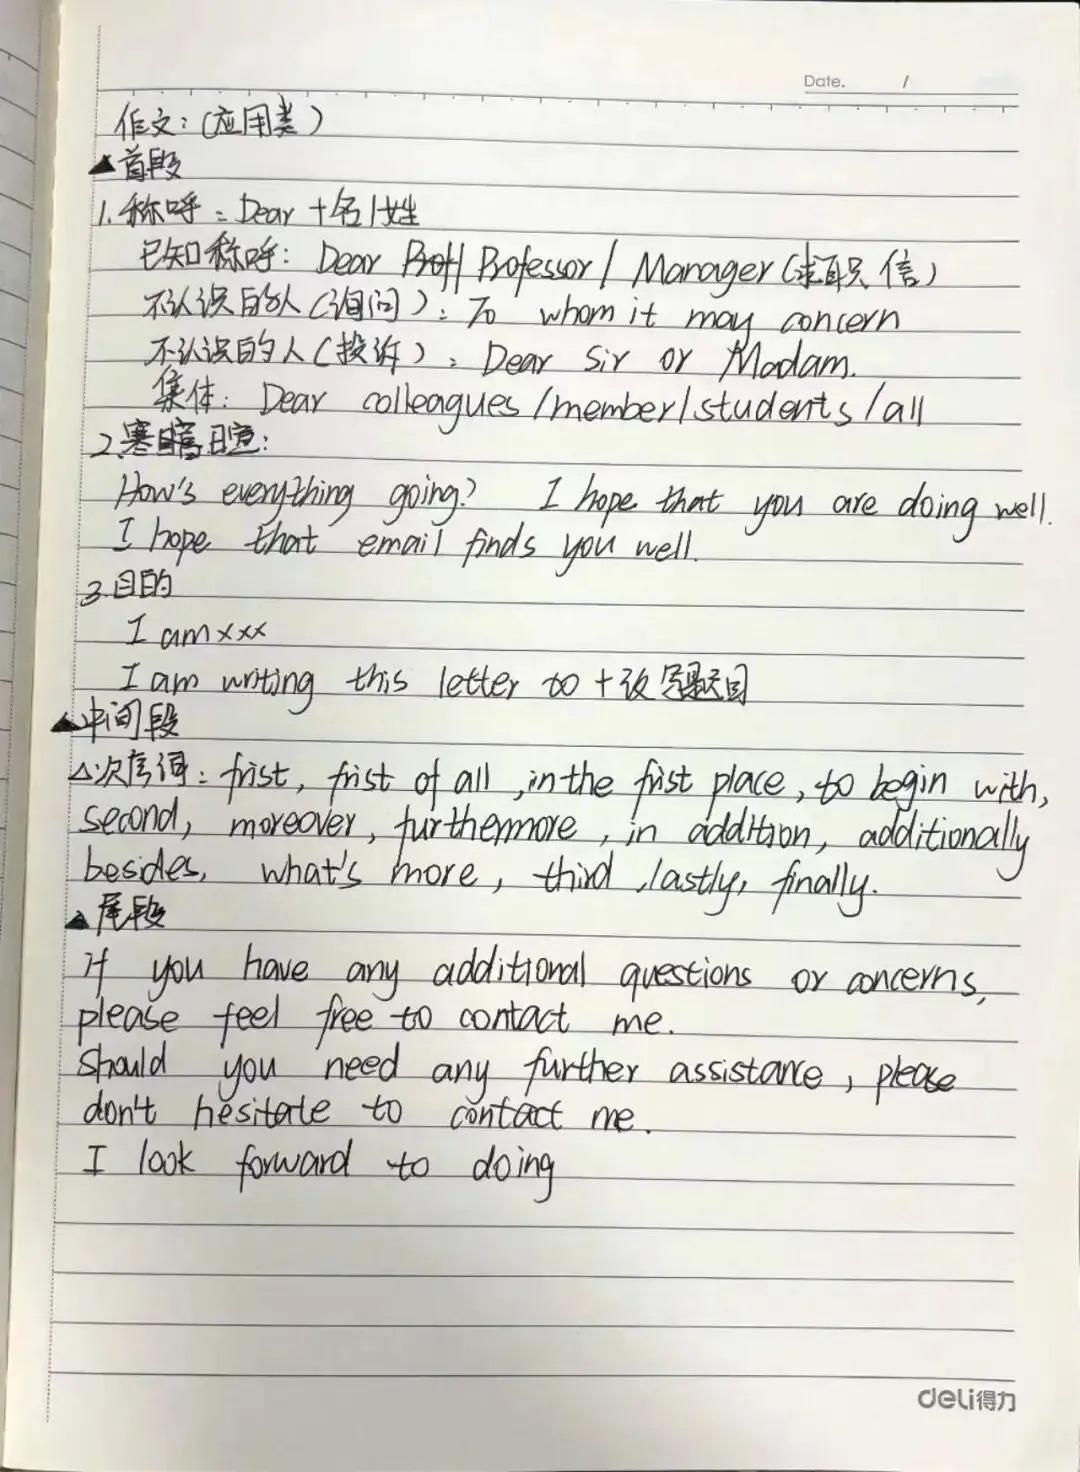 Date. /
作文:(应用类)
▲首段
1.称呼:Dear +名/姓
已知称呼: Dear Professor/ Manager(求职信)
不认识的人(询问): To whom it may concern
不认识的人(投诉): Dear Sir or Madam.
集体: Dear colleagues/member/students/all
2.寒暄:
How's everything going? I hope that you are doing well.
I hope that email finds you well.
3.目的
I am xxx
I am writing this letter to +改写题目
▲中间段
△次序词: frist, frist of all, in the frist place, to begin with,
second, moreover, furthermore, in addition, additionally
besides, what's more, third, lastly, finally.
▲尾段
If you have any additional questions or concerns,
please feel free to contact me.
Should you need any further assistance, please
don't hesitate to contact me.
I look forward to doing
deli得力